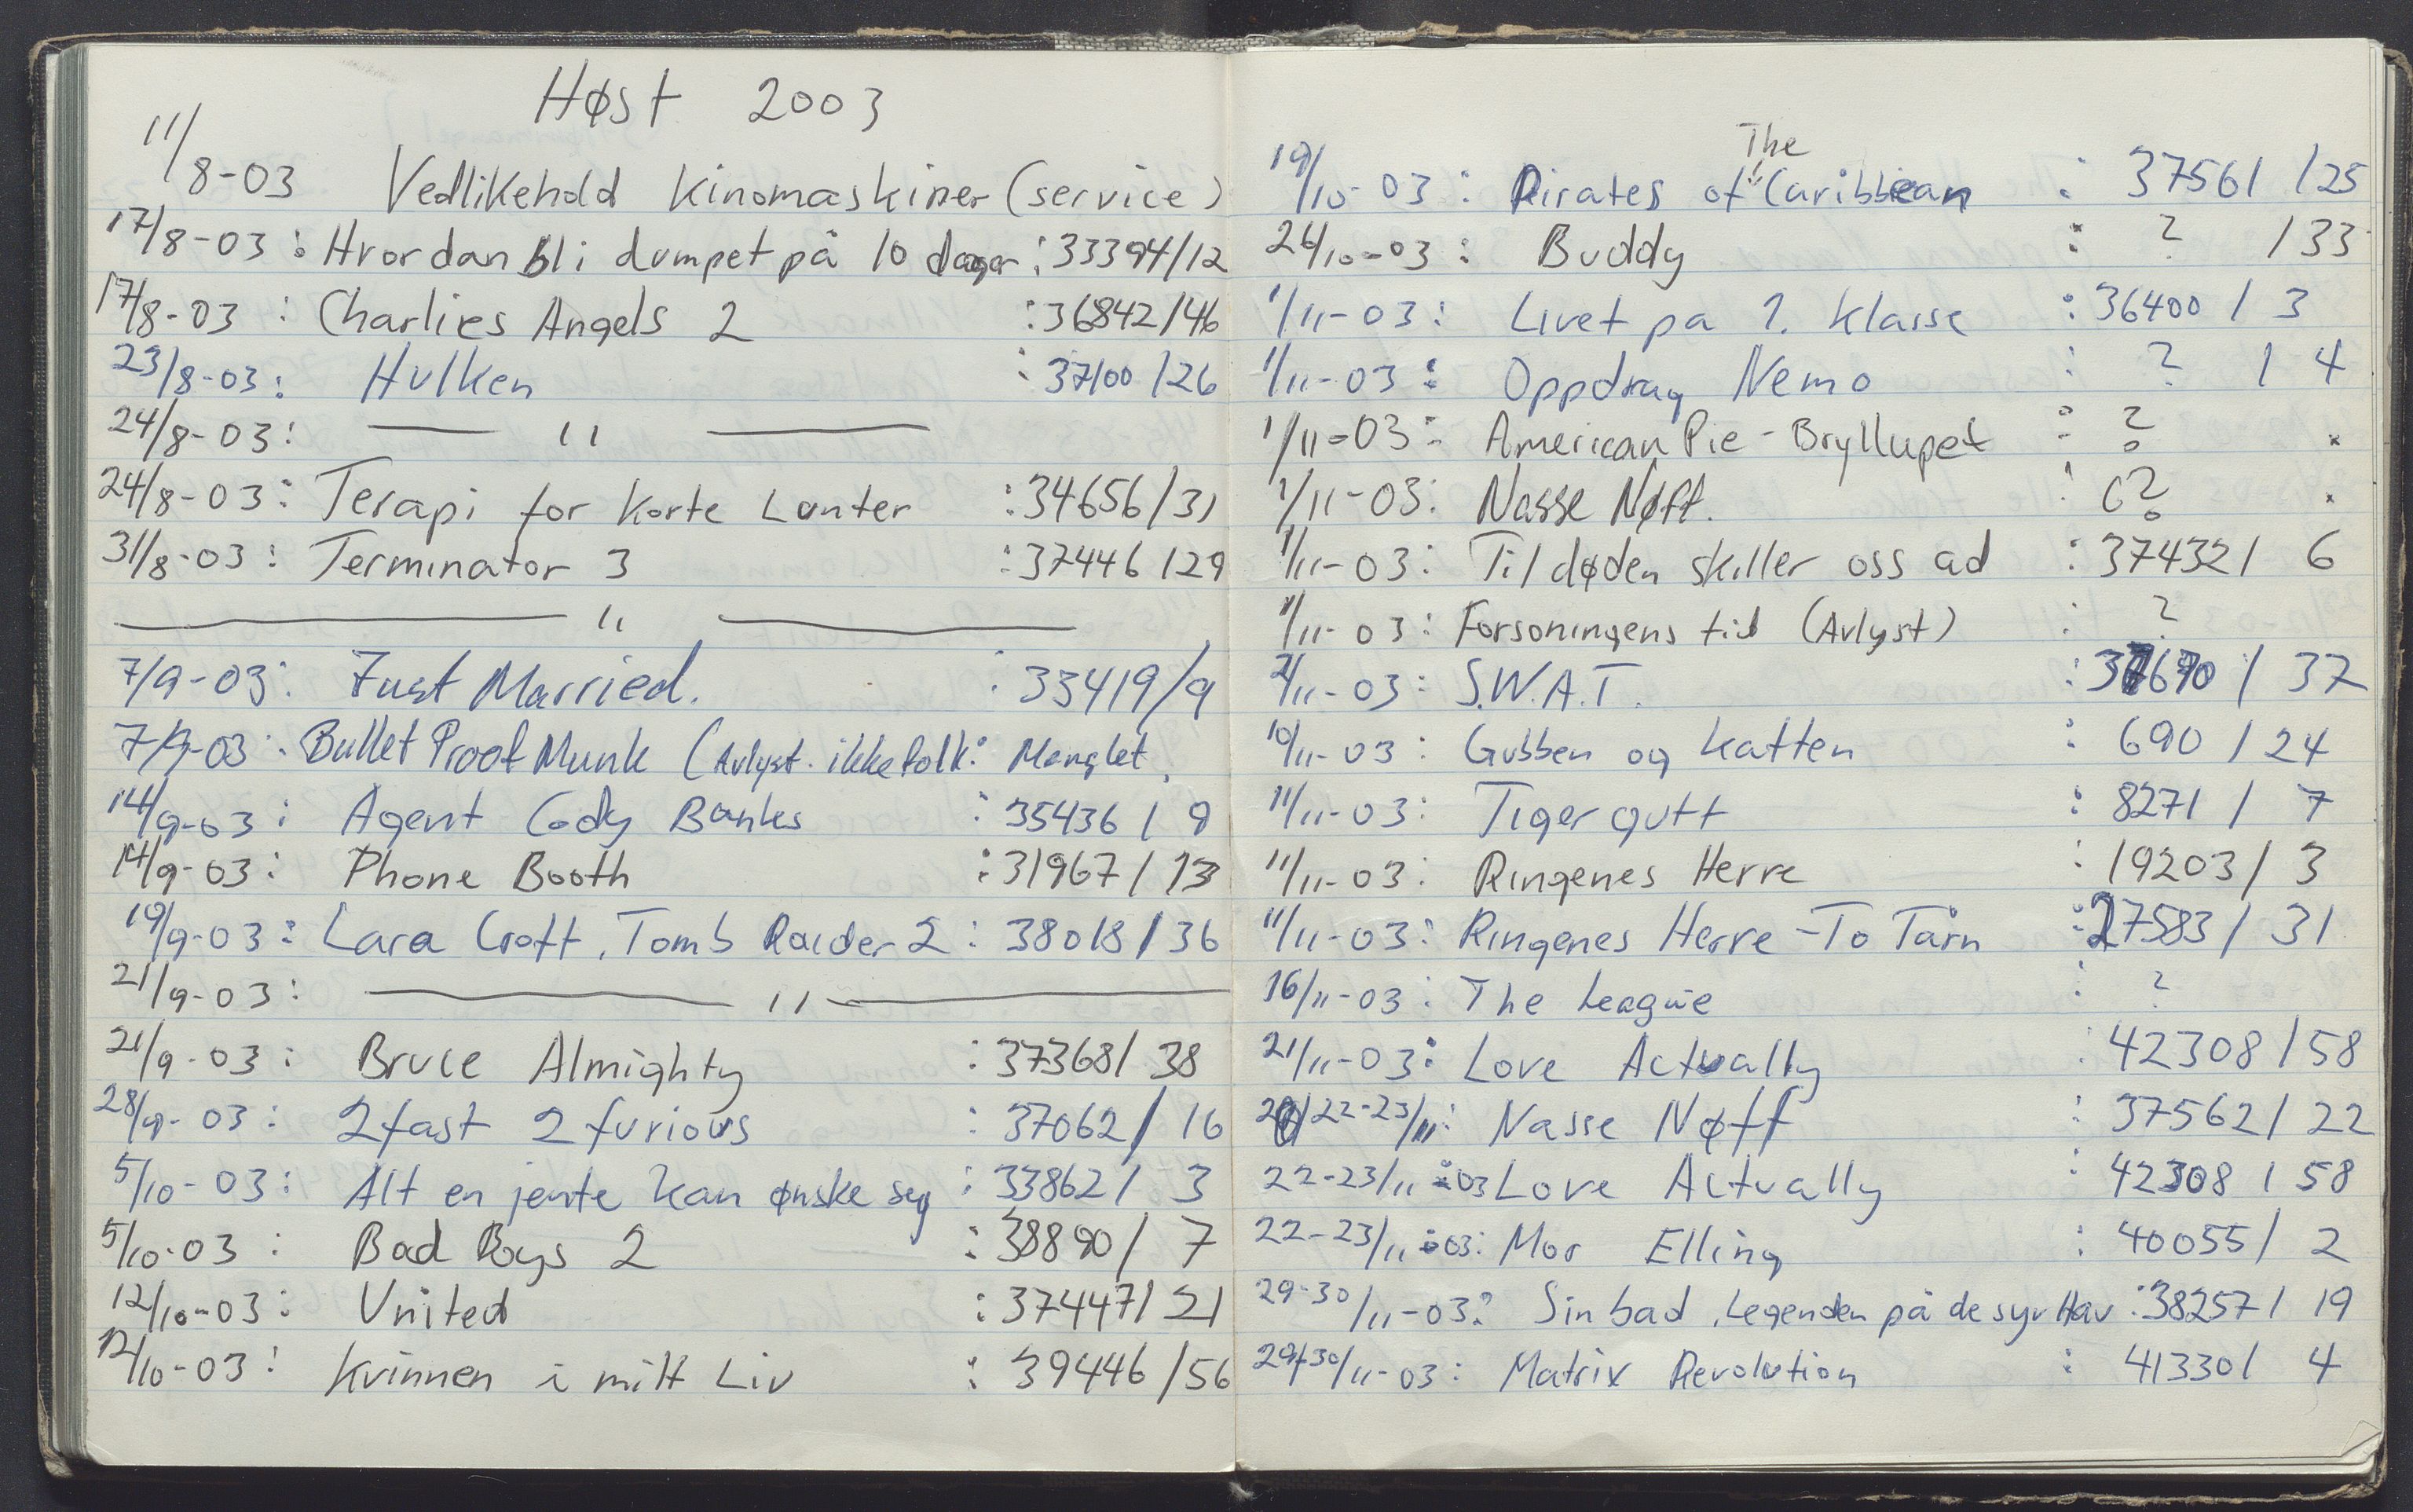 Høst 2003
11/8-03 Vedlikehold kinomaskiner (service)
17/8-03: Hvordan bli dumpet på 10 dager: 33394/12
17/8-03: Charlies Angels 2 : 36842/46
23/8-03: Hulken : 37100/26
24/8-03: —— " ——
24/8-03: Terapi for Korte Lunter : 34656/31
31/8-03: Terminator 3 : 37446/29
—— " ——
7/9-03: Just Married. : 33419/9
7/9-03: Bullet Proof Munk (Avlyst. ikke folk: Manglet.
14/9-03: Agent Cody Banks : 35436/9
14/9-03: Phone Booth : 31967/13
19/9-03: Lara Croft, Tomb Raider 2 : 38018/36
21/9-03: —— " ——
21/9-03: Bruce Almighty : 37368/38
28/9-03: 2 fast 2 furious : 37062/16
5/10-03: Alt en jente kan ønske seg : 33862/3
5/10-03: Bad Boys 2 : 38890/7
12/10-03: United : 37447/21
12/10-03: Kvinnen i mitt Liv : 39446/56
19/10-03: Pirates of The Caribbean : 37561/25
26/10-03: Buddy : ? /33
1/11-03: Livet pa 1. klasse : 36400/3
1/11-03: Oppdrag Nemo : ? /4
1/11-03: American Pie - Bryllupet : ? x
1/11-03: Nasse Nøff. : ? x
1/11-03: Til døden skiller oss ad : 37432/6
1/11-03: Forsoningens tid (Avlyst) : ?
2/11-03: S.W.A.T. : 37670/37
10/11-03: Gubben og katten : 690/24
11/11-03: Tigergutt : 8271/7
11/11-03: Ringenes Herre : 19203/3
11/11-03: Ringenes Herre - To Tårn : 27583/31
16/11-03: The League : ?
21/11-03: Love Actually : 42308/58
22-23/11: Nasse Nøff : 37562/22
22-23/11-03 Love Actually : 42308/58
22-23/11-03: Mor Elling : 40055/2
29-30/11-03: Sinbad, Legenden på de syv Hav : 38257/19
29-30/11-03: Matrix Revolution : 41330/4